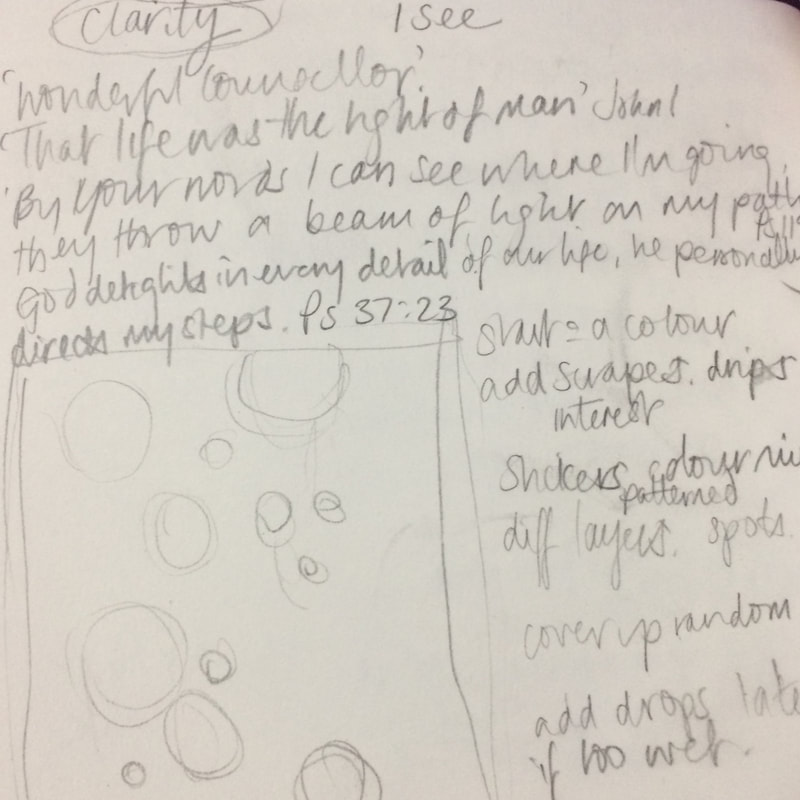 clarity    I see
'wonderful Counsellor'.
'That life was the light of man' John 1
'By your words I can see where I'm going,
they throw a beam of light on my path
Ps 119
God delights in every detail of our life, he personally
directs my steps. Ps 37:23
start = a colour
add scrapes. drips
interest
Stickers colour
patterned
diff layers. spots.
cover up random
add drops late
if too wet.